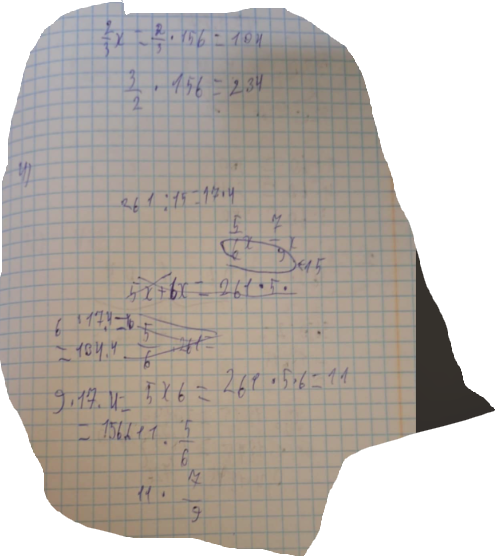 2/3 x = 2/3 · 156 = 104
3/2 · 156 = 234
4)
261 : 15 = 17.4
5/6 x 7/9 x
15
5x+6x = 261 · 5 ·
6 · 17.4 =
= 104.4 5/6
9 · 17.4 = 5x6 = 261 · 5 · 6 = 11
= 156 11 · 5/6
11 · 7/9